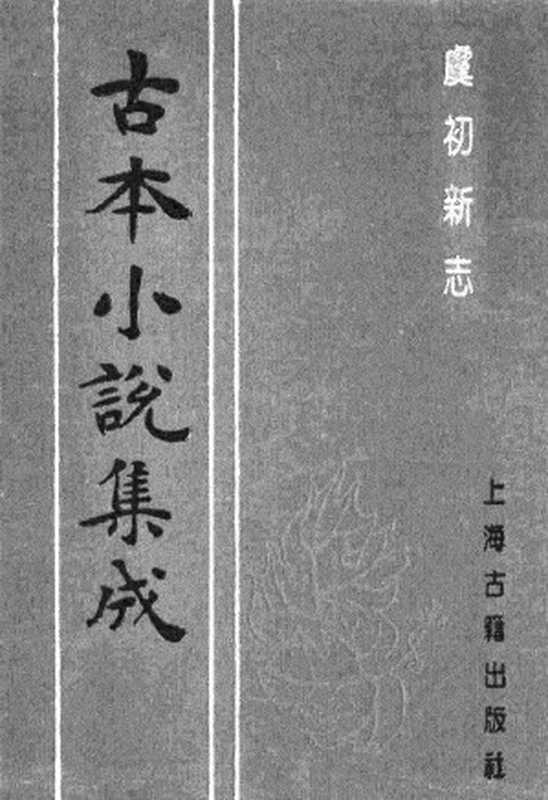 虞初新志
上海古籍出版社
古本小說集成